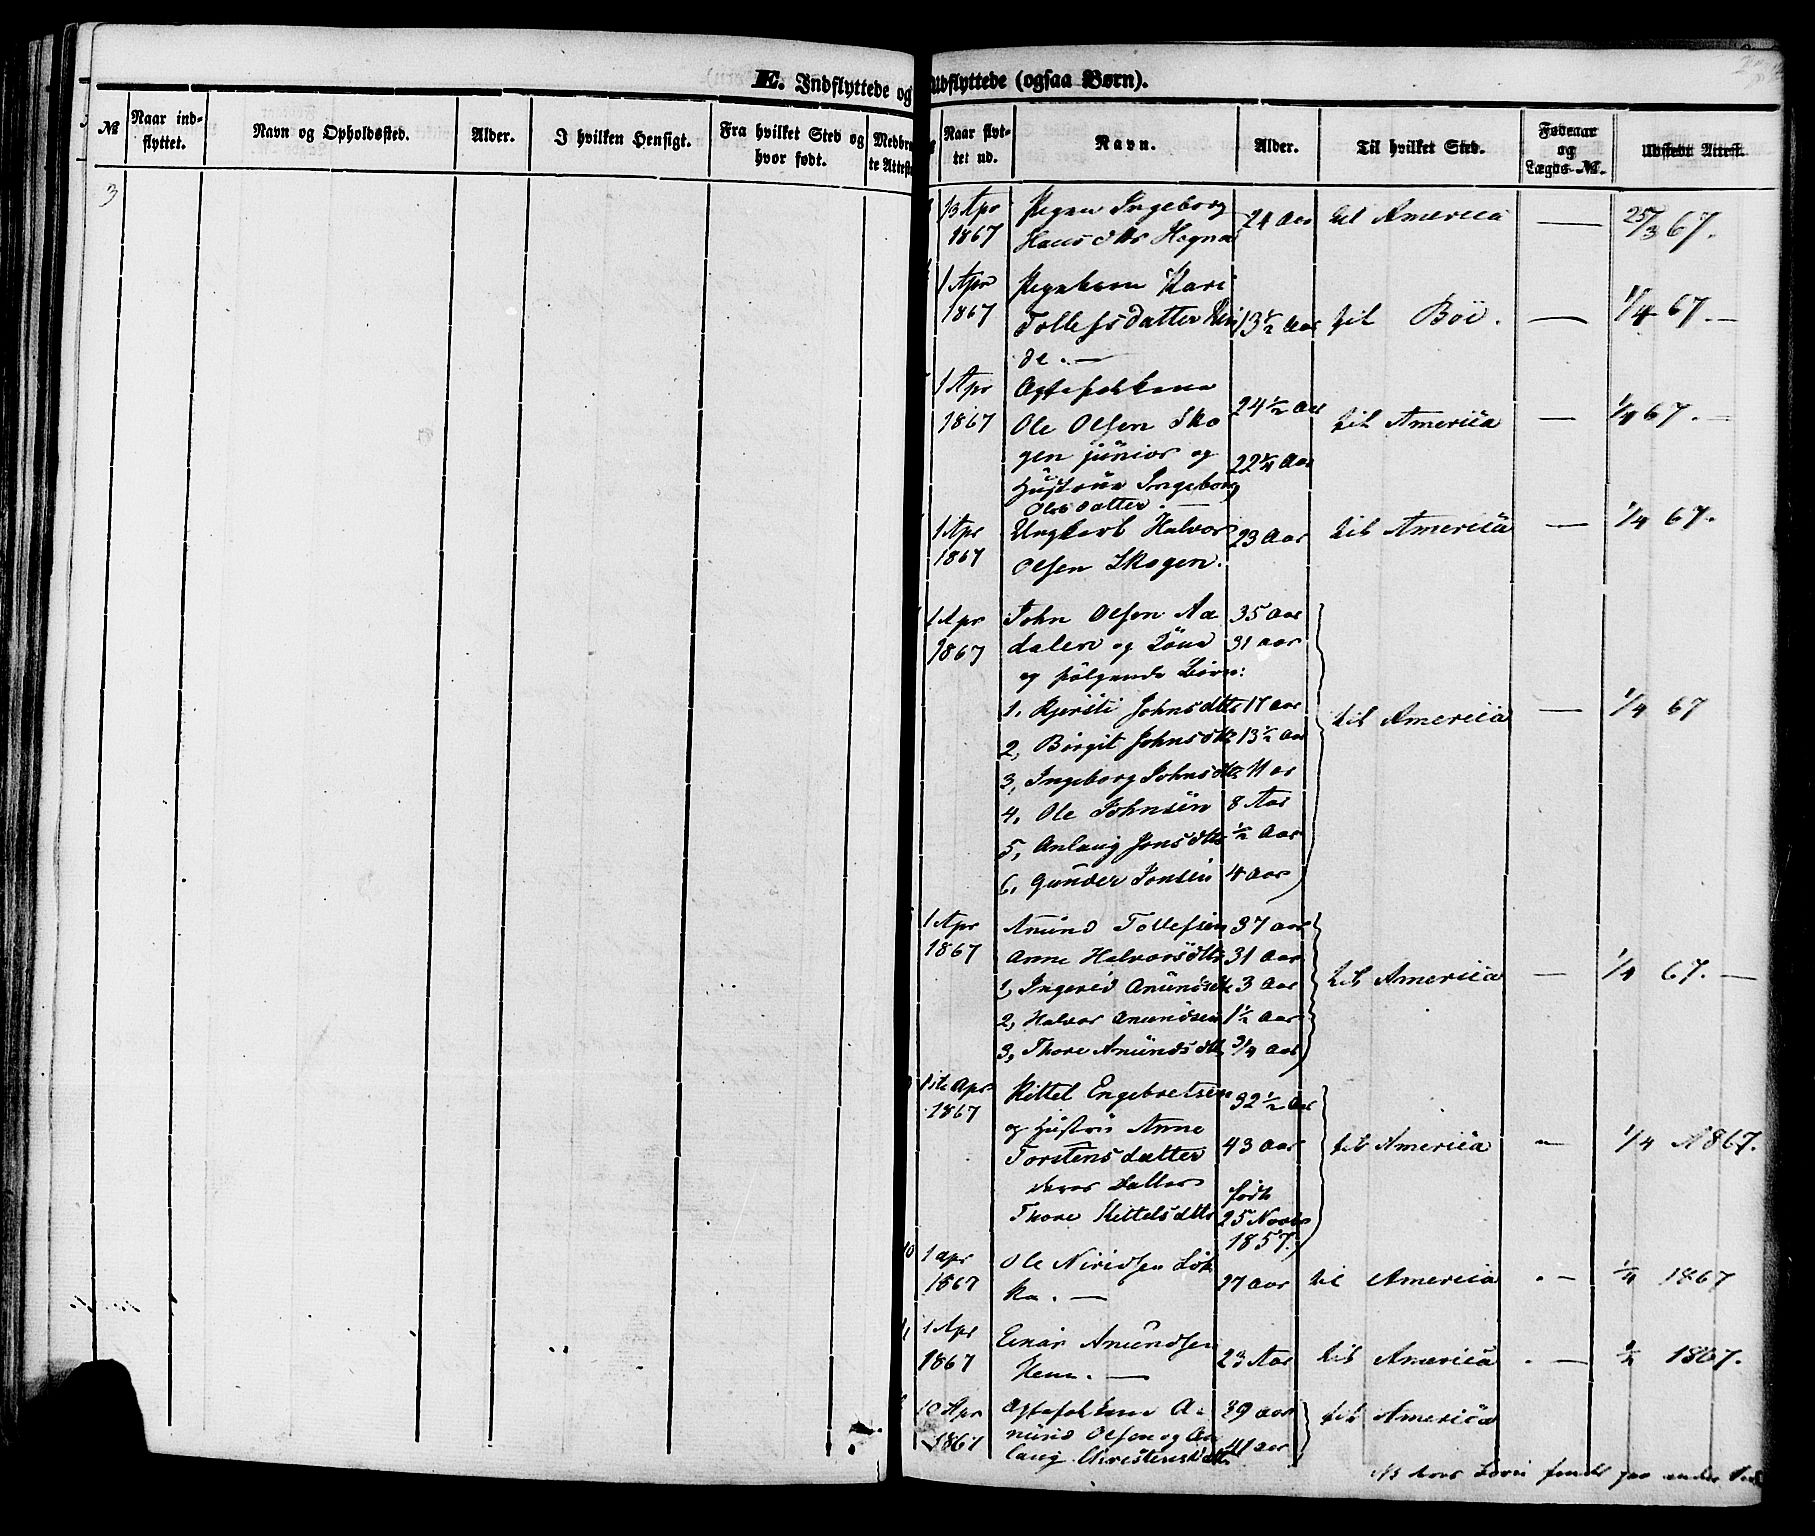 E. Indflyttede og Udflyttede (ogsaa Børn).
№ Naar indflyttet. Navn og Opholdssted. Alder. I hvilken Hensigt. Fra hvilket Sted og hvor født. Medbragte Attest
Naar flyttet ud. Navn. Alder. Til hvilket Sted. Fødeaar og Lægds-№. Udstedt Attest.
3
13 Apr Pigen Ingeborg 24 Aar til America — 25/3 67.
1867 Hansdttr Hogna
1 Apr Pigebarn Kari
1867 Tollefsdatter 13½ Aar til Böe. — 1/4 67. —
de. —
1 Apr Ægtefolkene
1867 Ole Olsen Sko 24½ Aar til America — 1/4 67. —
gen junior og 22¼ Aar
Hustrue Ingeborg
Olesdatter. —
1 Apr Ungkarl Halvor 23 Aar til America — 1/4 67.
1867 Olsen Skogen.
1 Apr John Olsen Aa 35 Aar
1867 dalen og 31 Aar
og følgende Börn:
1, Kjersti Johnsdttr 17 Aar til America — 1/4 67
2, Birgit Johnsdttr 13½ Aar
3, Ingeborg Johnsdttr 11 ar
4, Ole Johnsen 8 Aar
5, Anlaug Jonsdttr ½ Aar
6, Gunder Jonsen 4 Aar
1 Apr Anund Tollefsen 37 Aar
1867 Anne Halvorsdttr 31 Aar
1, Ingerid Anundsdtt 3 Aar til America — 1/4 67. —
2, Halvor Anundsen 1½ Aar
3, Thore Anundsdttr 3/4 Aar
1ste Apr Kittel Engebretsen 32½ Aar
1867 og Hustru Anne
Torstensdatter 43 Aar til America — 1/4 1867.
deres Datter født
Thore Kittelsdttr 25 Novbr
1857.
10 1 Apr Ole Niridsen Lök
1867 ka. — 27 Aar til America . — 1/4 1867
1 Apr Einar Amundsen
1867 23 Aar til America . — 1/2 1867.
10 Apr Ægtefolkene A 39 aar til America
1867 mund Olsen og An 41 aar
laug Christensdatt
NB Börn paa anden Side